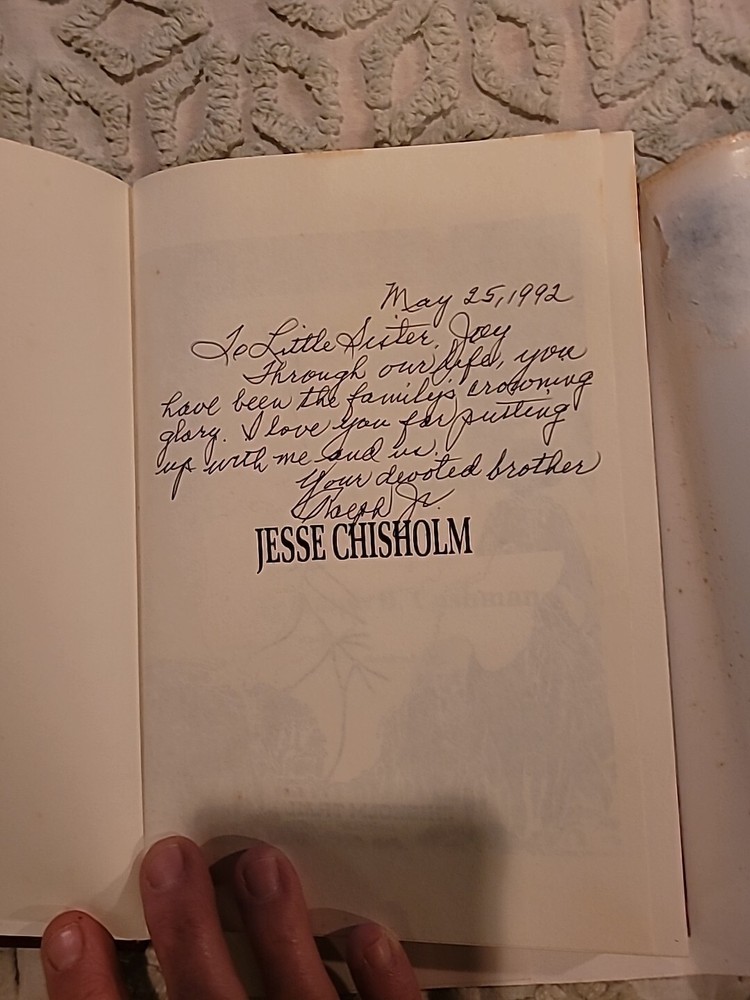 May 25, 1992
To Little Sister, Joey
Through our life, you
have been the family's crowning
glory. I love you for putting
up with me and us.
Your devoted brother
Ralph Jr.
JESSE CHISHOLM